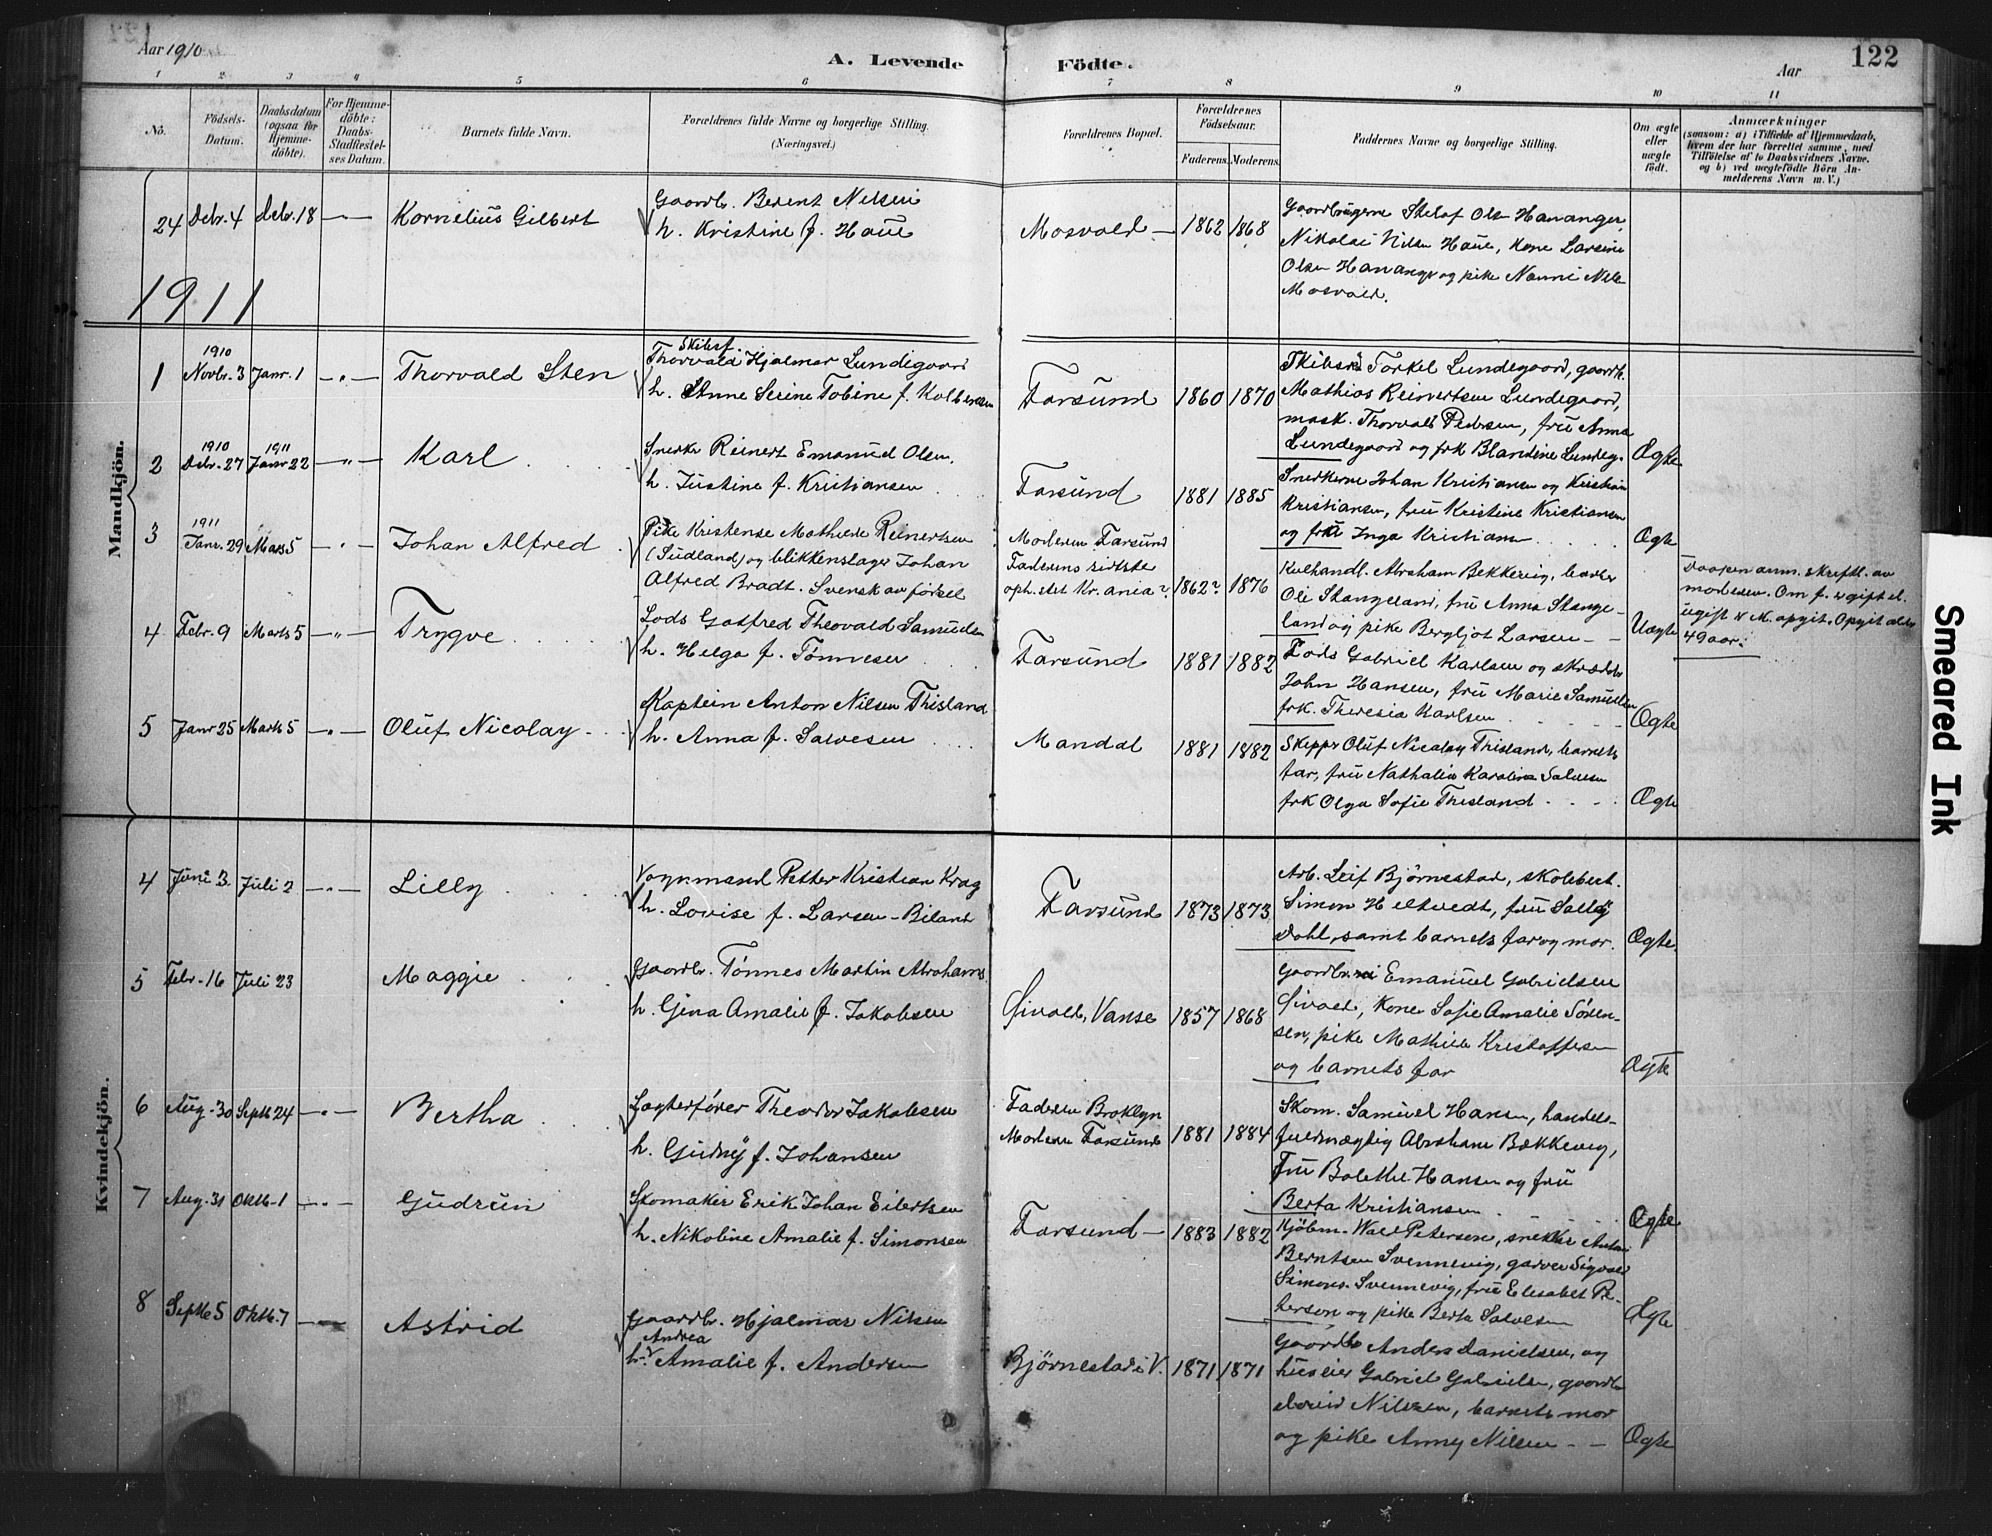 Aar 1910
A. Levende Födte.
Aar
122
1 2 3 4 5 6 7 8 9 10 11
No.
Födsels-Datum.
Daabsdatum (ogsaa for Hjemme-döbte).
For Hjemme-döbte: Daabs-Stadfæstel-ses Datum.
Barnets fulde Navn.
Forældrenes fulde Navne og borgerlige Stilling.
(Næringsvei.)
Forældrenes Bopæl.
Forældrenes Födselsaar.
Faderens. Moderens.
Faddernes Navne og borgerlige Stilling.
Om ægte eller uægte födt.
Anmærkninger
(saasom: a) i Tilfælde af Hjemmedaab,
hvem der har forrettet samme, med
Tilföielse af to Daabsvidners Navne,
og b) ved uægtefödte Börn An-
melderens Navn m. V.)
24 Debr. 4 Debr. 18 Kornelius Gilbert
Gaardb. Berent Nilsen
h. Kristine f. Haue
Mosvold 1862 1868
Gaardbrugerne Olsen Hananger,
Nikolai Nilsen Haue, Kone Larsine
Olsen Hananger og pike Nanni Nils.
Mosvold.
1911
Mandkjön.
1 1910 Novbr. 3 Janr. 1 Thorvald Sten
Skibsf.
Thorvald Hjalmar Lundegaard
h. Anne Serine Tobine f. Kolbensen
Farsund 1860 1870
Torkel Lundegaard, gaardb.
Mathias Reinertsen Lundegaard,
mask. Thorvald Pedersen, fru Anna
Lundegaard og frk Blandine Lundeg. Ægte
2 1910 Debr. 27 1911 Janr 22 Karl
Snekker Reinert Emanuel Olsen
h. Justine f. Kristiansen
Farsund 1881 1885
Snedkerne Johan Kristiansen og Kristian
Kristiansen, fru Kristine Kristiansen
og fru Inga Kristiansen Ægte
3 1911 Janr. 29 Marts 5 Johan Alfred
Pike Kristense Mathilde Reinertsen
(Sudland) og blikkenslager Johan
Alfred Bradt. Svensk av fødsel
Moderen Farsund
Faderens sidste
oph. sted Kr.ania? 1862? 1876
Kulhandl. Abraham Bekkevig, barber
Ole Stangeland, fru Anna Stange-
land og pike Bergljot Larsen Uægte
Daapen anm. skriftl. av
moderen. Om f. er gift el.
ugift er ei opgit. Opgit alder
49 aar.
4 Febr. 9 Marts 5 Trygve
Lods Gotfred Theovald Samuelsen
h. Helga f. Tønnesen
Farsund 1881 1882
Lods Gabriel Karlsen og skrædder
John Hansen, fru Marie Samuelsen
frk. Theresia Karlsen Ægte
5 Janr 25 Marts 5 Oluf Nicolay
Kaptein Anton Nilsen Thisland
h. Anna f. Salvesen
Mandal 1881 1882
Skipper Oluf Nicolay Thisland, barnets
far, fru Nathalia Karoline Salvesen
frk Olga Sofie Thisland Ægte
Kvindekjön.
4 Juni 3 Juli 2 Lilly
Vognmand Petter Kristian Krag
h. Lovise f. Larsen-Biland
Farsund 1873 1873
Arb. Leif Bjørnestad, skolebest.
Simon Heltvedt, fru Sally
Dahl, samt barnets far og mor. Ægte.
5 Febr. 16 Juli 23 Maggie
Gaardbr. Tønnes Martin Abrahams.
h. Gina Amalie f. Jakobsen
Vanse 1857 1868
Gaardbr. Emanuel Gabrielsen
Kone Sofie Amalie Søren-
sen, pike Mathilde Kristoffersen
og barnets far Ægte
6 Aug. 30 Septb 24 Bertha
Lagterfører Theodor Jakobsen
h. Gudny f. Johansen
Faderen Broklyn
Moderen Farsund 1881 1884
Skom. Samuel Hansen, handels-
fuldmægtig Abraham Bækkevig,
Fru Bolethe Hansen og fru
Berta Kristiansen Ægte
7 Aug. 31 Oktb. 1 Gudrun
Skomaker Erik Johan Eilertsen
h. Nikoline Amalie f. Simonsen
Farsund 1883 1882
Kjøbm. Petersen, snekker Anton
Berntsen Svennevig, garver Sigvald
Simons. Svennevig, fru Elesabet Pe-
terson og pike Berta Salvesen Ægte
8 Septb 5 Oktb. 7 Astrid
Gaardbr. Hjalmar Nilsen
Andrea
h. Amalie f. Andersen
Bjørnestad i V. 1871 1871
Gaardb Anders Danielsen, og
huseier Gabriel Gabrielsen, gaardb
David Nilsen, barnets mor
og pike Anny Nilsen Ægte
Smeared Ink